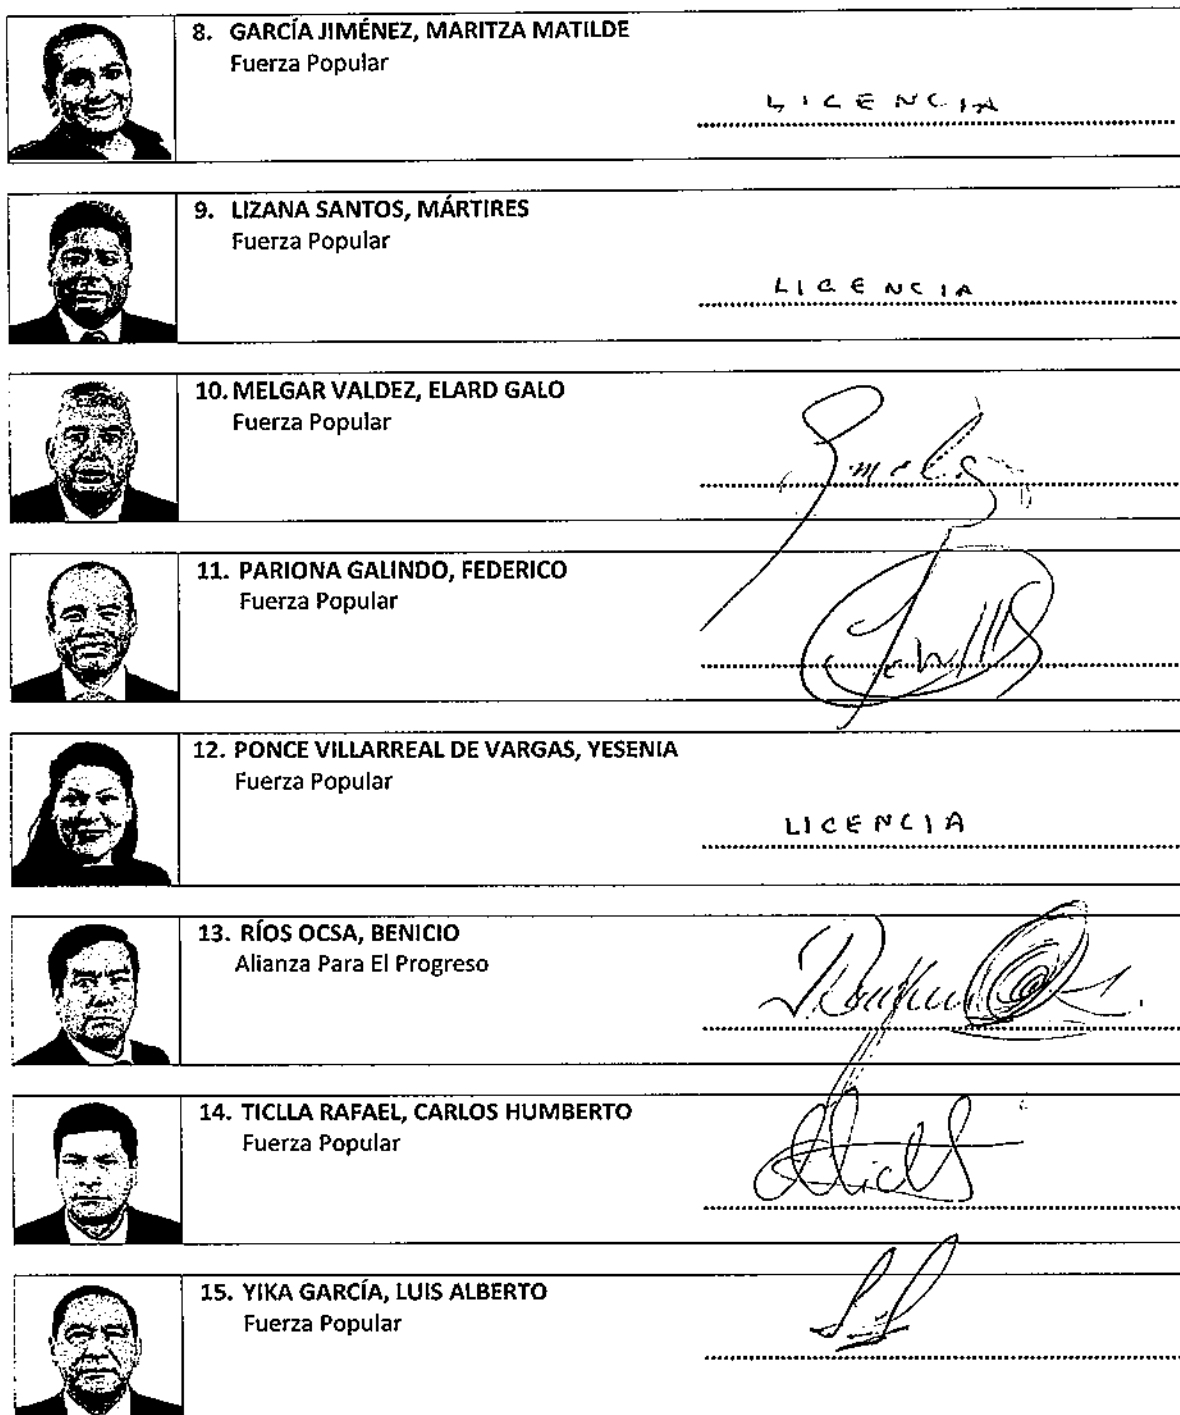 8. GARCÍA JIMÉNEZ, MARITZA MATILDE
Fuerza Popular
LICENCIA
9. LIZANA SANTOS, MÁRTIRES
Fuerza Popular
LICENCIA
10. MELGAR VALDEZ, ELARD GALO
Fuerza Popular
11. PARIONA GALINDO, FEDERICO
Fuerza Popular
12. PONCE VILLARREAL DE VARGAS, YESENIA
Fuerza Popular
LICENCIA
13. RÍOS OCSA, BENICIO
Alianza Para El Progreso
14. TICLLA RAFAEL, CARLOS HUMBERTO
Fuerza Popular
15. YIKA GARCÍA, LUIS ALBERTO
Fuerza Popular